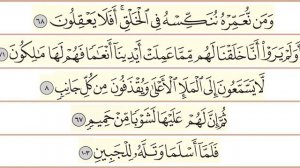 وَمَن نُّعَمِّرْهُ نُنَكِّسْهُ فِي الْخَلْقِ ۖ أَفَلَا يَعْقِلُونَ ٦٨
أَوَلَمْ يَرَوْا أَنَّا خَلَقْنَا لَهُم مِّمَّا عَمِلَتْ أَيْدِينَا أَنْعَامًا فَهُمْ لَهَا مَالِكُونَ ٧١
لَا يَسَّمَّعُونَ إِلَى الْمَلَإِ الْأَعْلَىٰ وَيُقْذَفُونَ مِن كُلِّ جَانِبٍ ٨
ثُمَّ إِنَّ لَهُمْ عَلَيْهَا لَشَوْبًا مِّنْ حَمِيمٍ ٦٧
فَلَمَّا أَسْلَمَا وَتَلَّهُ لِلْجَبِينِ ١٠٣